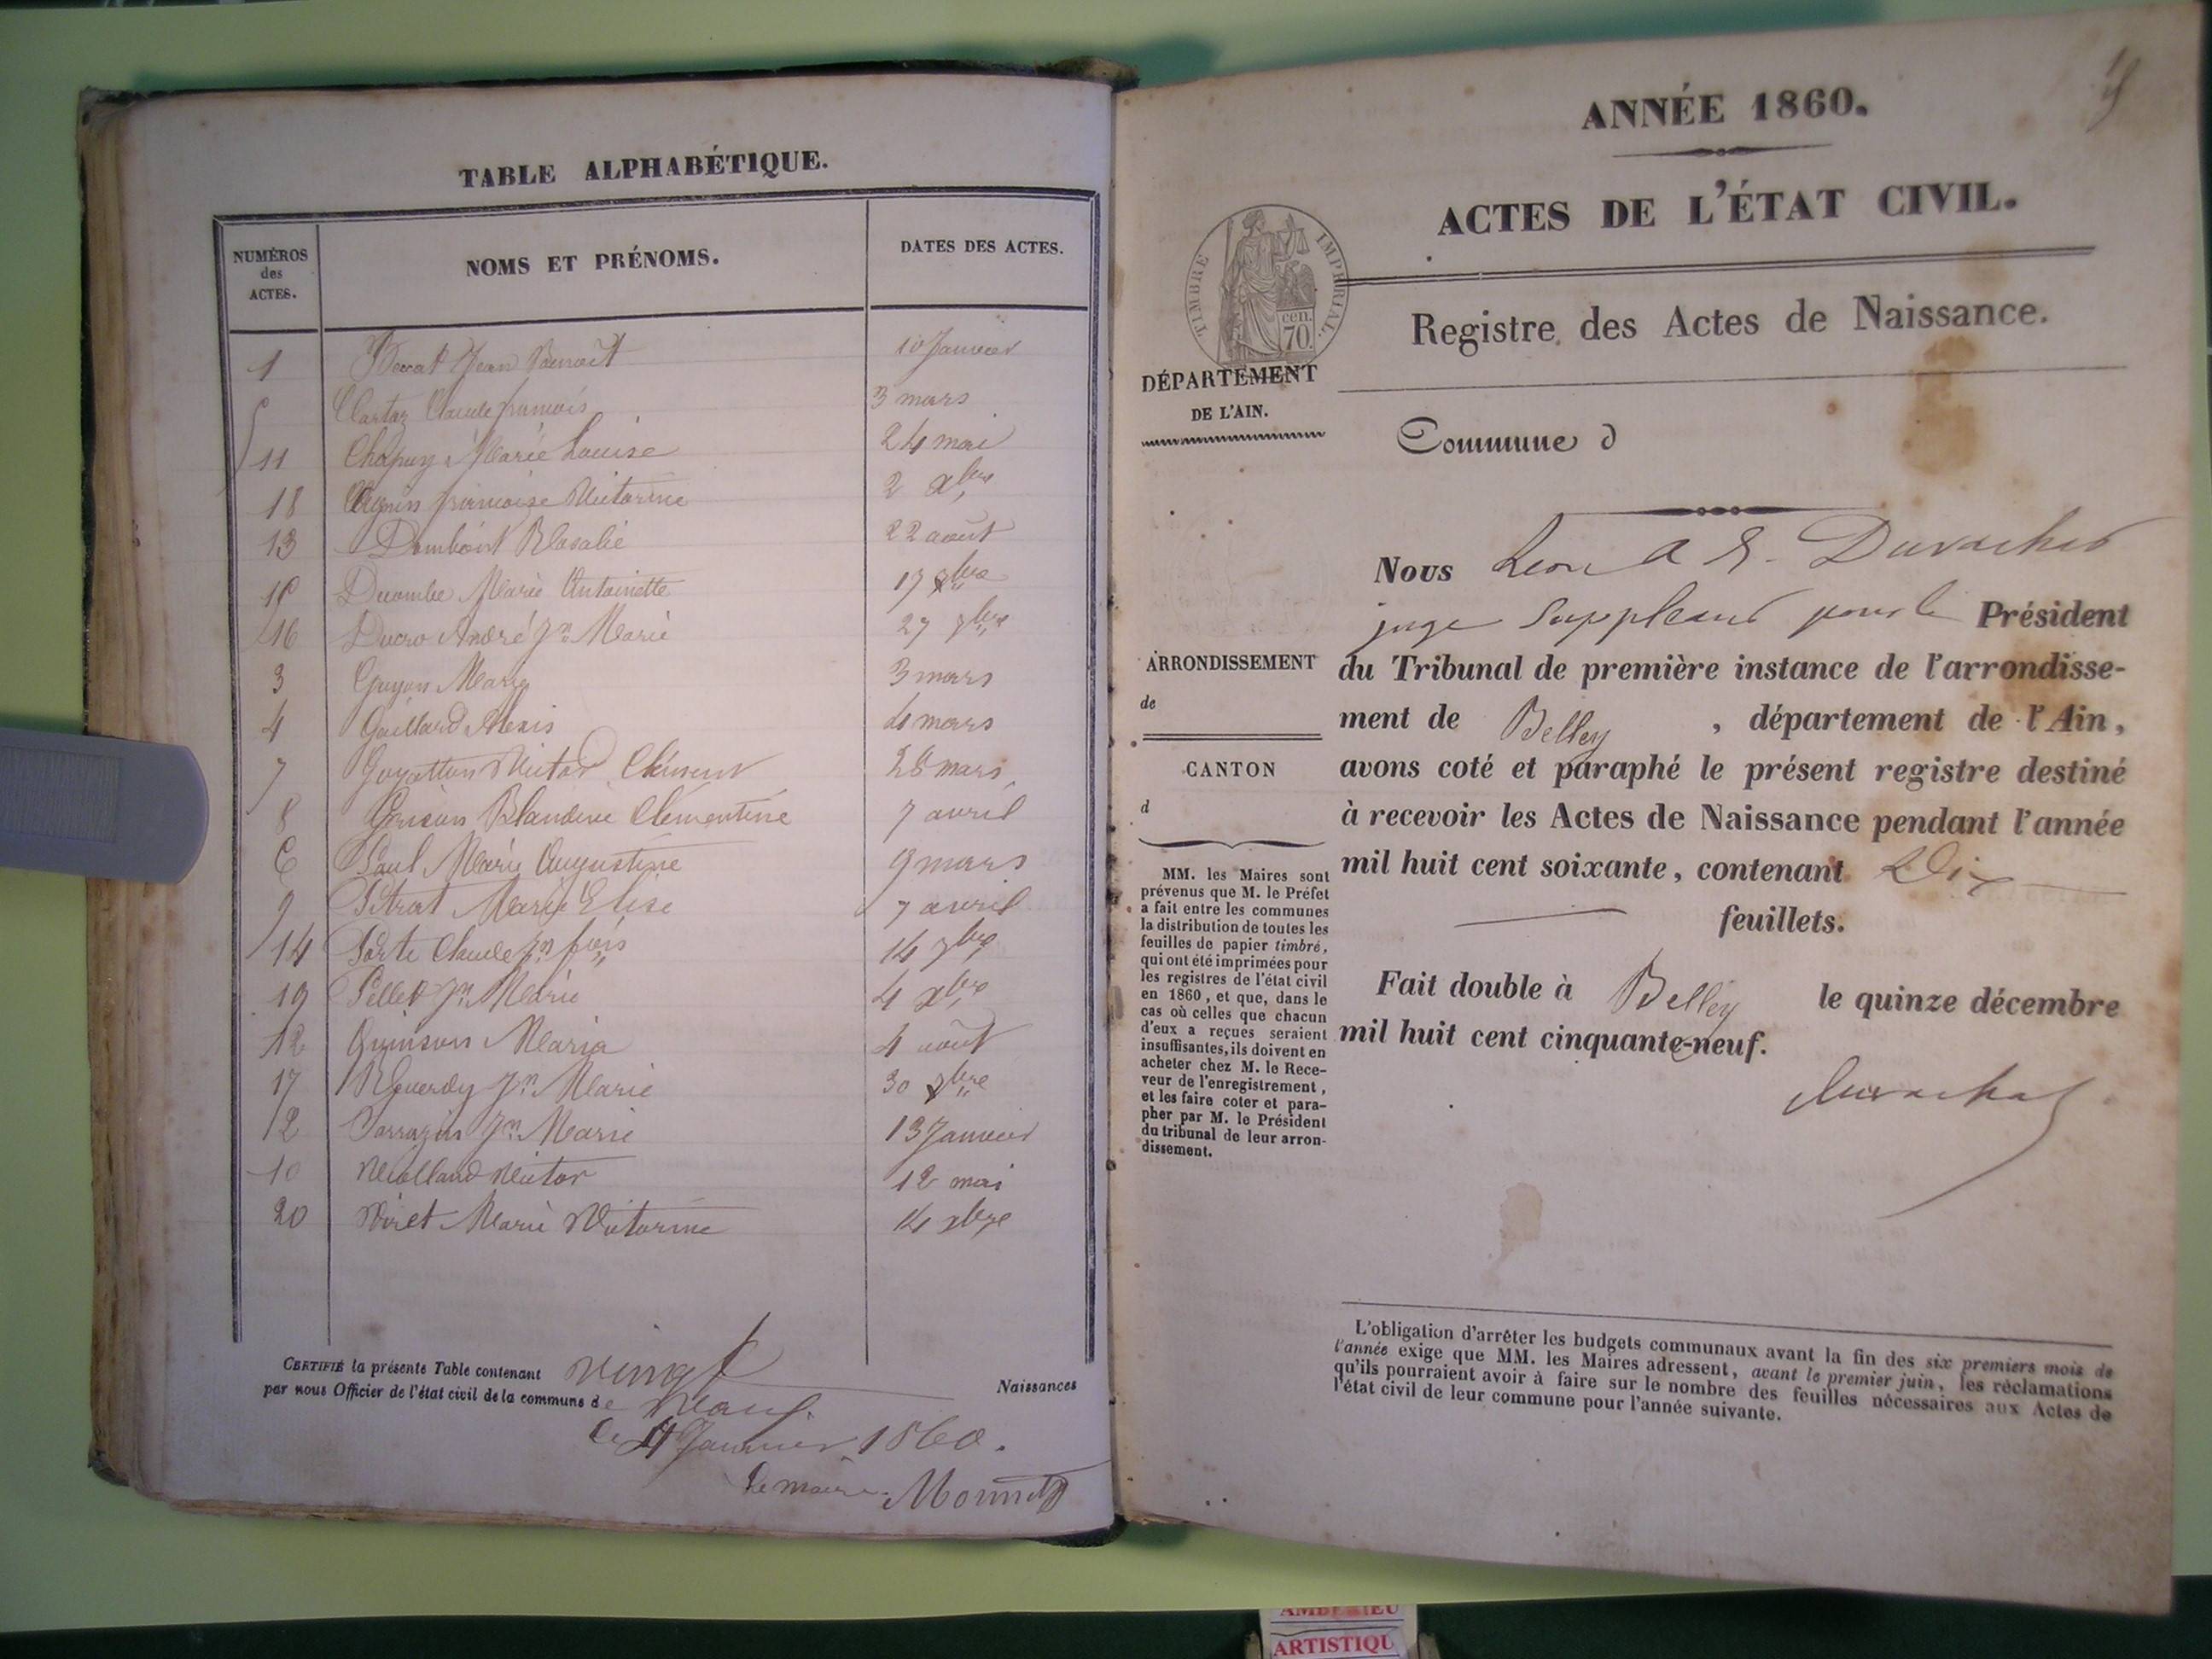 TABLE ALPHABÉTIQUE.
NUMÉROS des ACTES.
NOMS ET PRÉNOMS.
DATES DES ACTES.
1 Jean Benoît 10 Janvier
5 Claude françois 3 mars
11 Chapuy Marie Louise 24 mai
18 françoise Victorine 2 xbre
13 Rosalie 22 août
15 Ducombe Marie Antoinette 17
16 Ducro André Jn Marie 27 7bre
3 Guyon Mary 3 mars
4 Gaillard Alexis 4 mars
7 Victor Clément 28 mars
8 Blandine Clémentine 7 avril
6 Paul Marie Augustine 9 mars
9 Pétrat Marie Elise 7 avril
14 Porte Claude Jn fçois 14 7bre
19 Pellet Jn Marie 4 xbre
12 Quinson Maria 4 août
17 Jn Marie 30
2 Sarrazin Jn Marie 13 Janvier
10 Violland Victor 12 mai
20 Viret Marie Victorine 14 xbre
CERTIFIÉ la présente Table contenant vingt Naissances
par nous Officier de l'état civil de la commune de
le 4 Janvier 1860.
Le maire
ANNÉE 1860.
ACTES DE L'ÉTAT CIVIL.
TIMBRE IMPÉRIAL.
cen.
70.
Registre des Actes de Naissance.
DÉPARTEMENT
DE L'AIN.
Commune d
Nous Leon A
juge Suppleant pour le Président
ARRONDISSEMENT
de
du Tribunal de première instance de l'arrondisse-
ment de Belley, département de l'Ain,
CANTON
d
avons coté et paraphé le présent registre destiné
à recevoir les Actes de Naissance pendant l'année
mil huit cent soixante, contenant Dix
feuillets.
MM. les Maires sont
prévenus que M. le Préfet
a fait entre les communes
la distribution de toutes les
feuilles de papier timbré,
qui ont été imprimées pour
les registres de l'état civil
en 1860, et que, dans le
cas où celles que chacun
d'eux a reçues seraient
insuffisantes, ils doivent en
acheter chez M. le Rece-
veur de l'enregistrement,
et les faire coter et para-
pher par M. le Président
du tribunal de leur arron-
dissement.
Fait double à Belley le quinze décembre
mil huit cent cinquante-neuf.
L'obligation d'arrêter les budgets communaux avant la fin des six premiers mois de
l'année exige que MM. les Maires adressent, avant le premier juin, les réclamations
qu'ils pourraient avoir à faire sur le nombre des feuilles nécessaires aux Actes de
l'état civil de leur commune pour l'année suivante.
ARTISTIQU